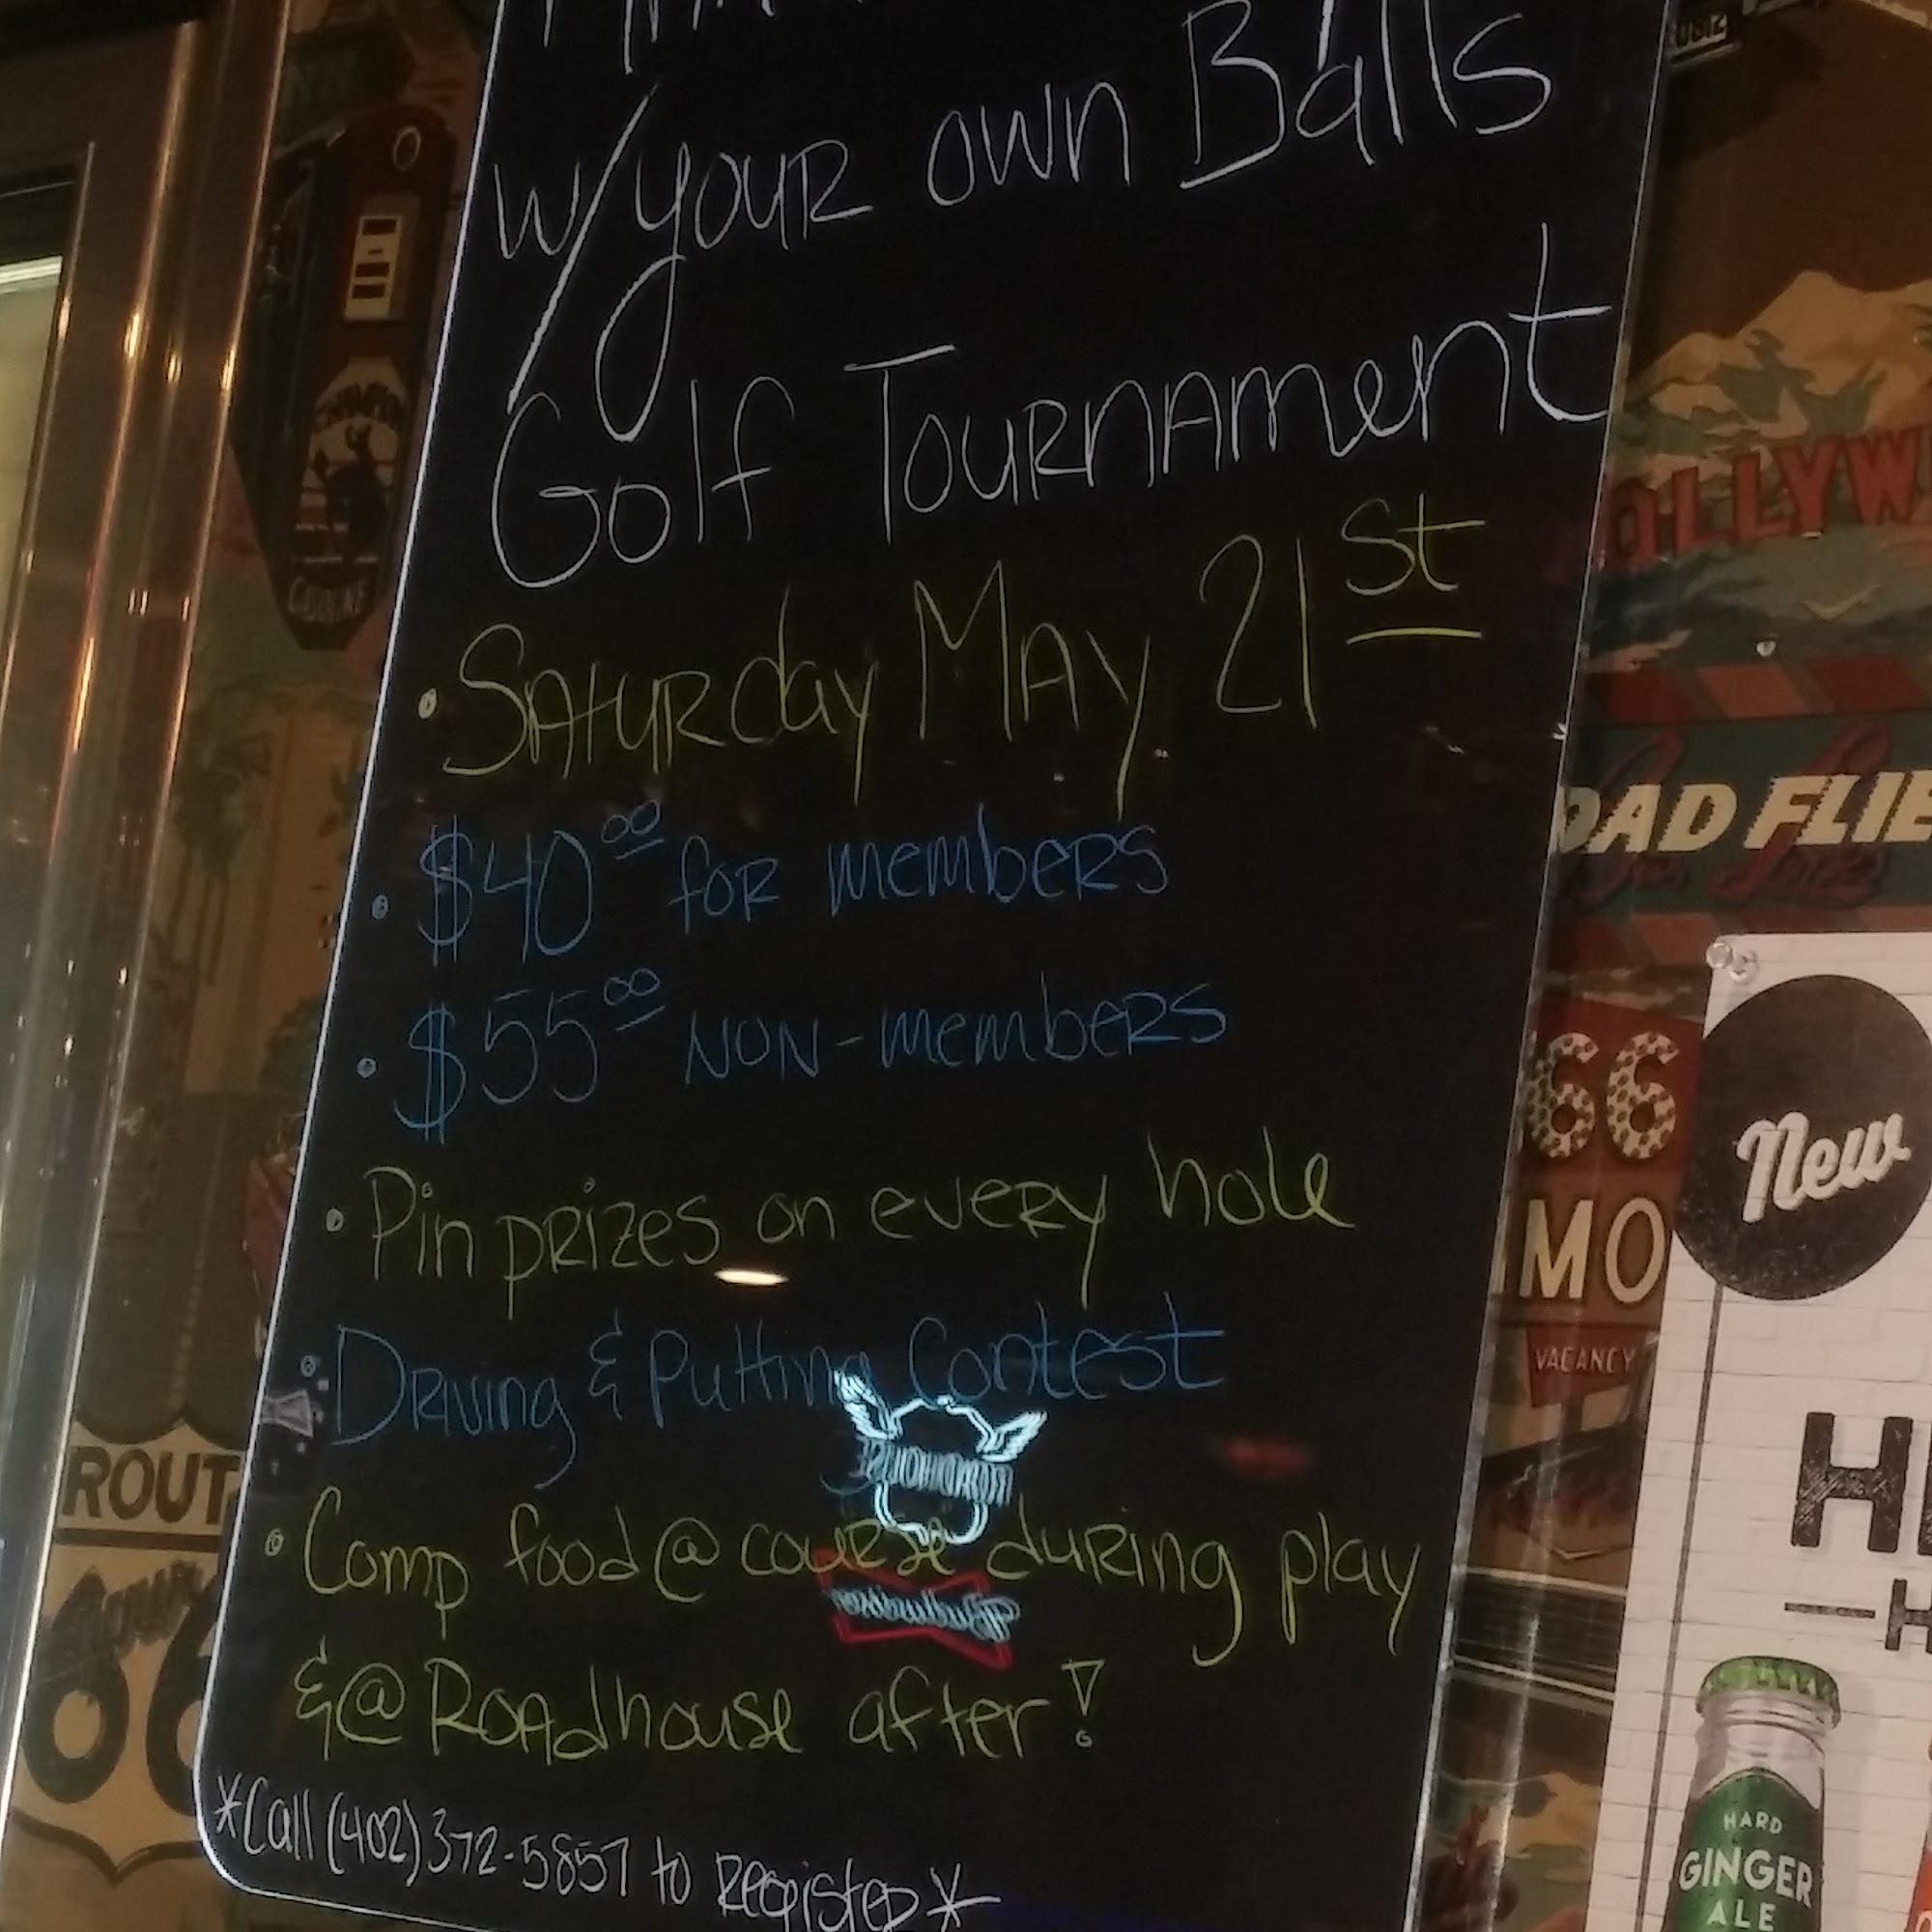 w/your own Balls
Golf Tournament
• Saturday May 21st
• $40.00 for members
• $55.00 non-members
• Pin prizes on every hole
• Driving & Putting Contest
• Comp food @ course during play
& @ Roadhouse after!
*Call (402) 372-5857 to Register*
GASOLINE
ROUT
66
OLLYW
OAD FLIE
66
MO
VACANCY
New
H
HARD
GINGER
ALE
Budweiser